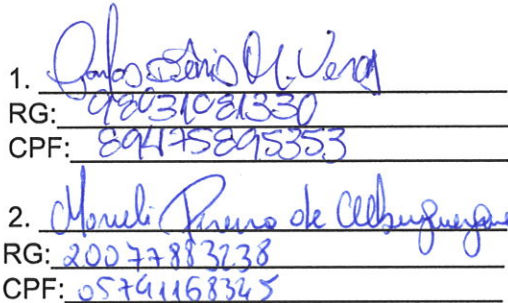 1. Carlos Denis M. Veras
RG: 98031081330
CPF: 89475895353
2. de Albuquerque
RG: 20077883238
CPF: 05741168345